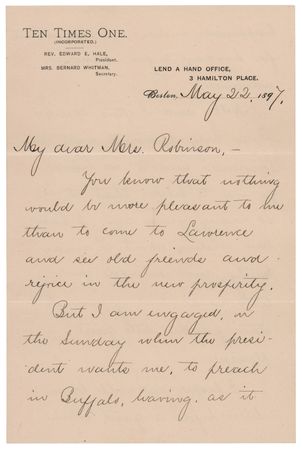 TEN TIMES ONE.
(INCORPORATED.)
REV. EDWARD E. HALE,
President.
MRS. BERNARD WHITMAN,
Secretary.
LEND A HAND OFFICE,
3 HAMILTON PLACE.
Boston, May 22, 1897.
My dear Mrs. Robinson, —
You know that nothing
would be more pleasant to me
than to come to Lawrence
and see old friends and
rejoice in the new prosperity.
But I am engaged, on
the Sunday when the presi-
dent wants me, to preach
in Buffalo, leaving, as it